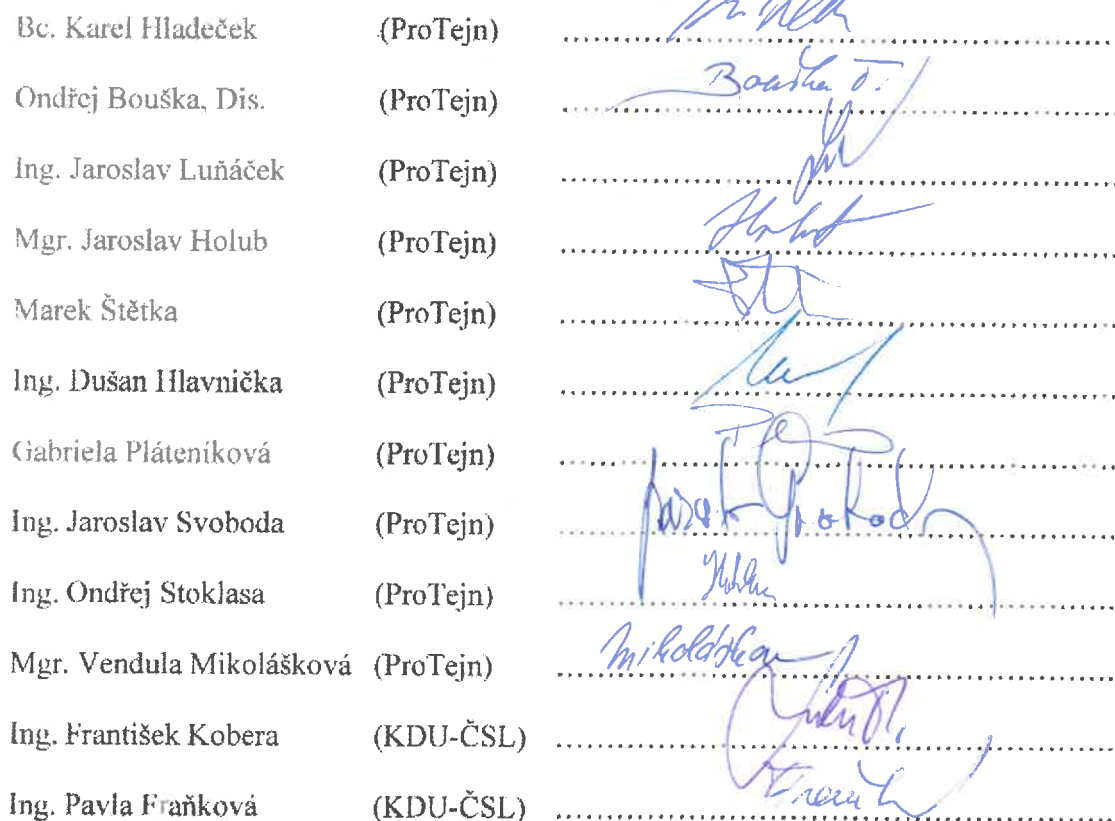 Bc. Karel Hladeček (ProTejn)
Ondřej Bouška, Dis. (ProTejn) Bouška O.
Ing. Jaroslav Luňáček (ProTejn)
Mgr. Jaroslav Holub (ProTejn)
Marek Štětka (ProTejn)
Ing. Dušan Hlavnička (ProTejn)
Gabriela Pláteníková (ProTejn)
Ing. Jaroslav Svoboda (ProTejn)
Ing. Ondřej Stoklasa (ProTejn)
Mgr. Vendula Mikolášková (ProTejn)
Ing. František Kobera (KDU-ČSL)
Ing. Pavla Fraňková (KDU-ČSL)